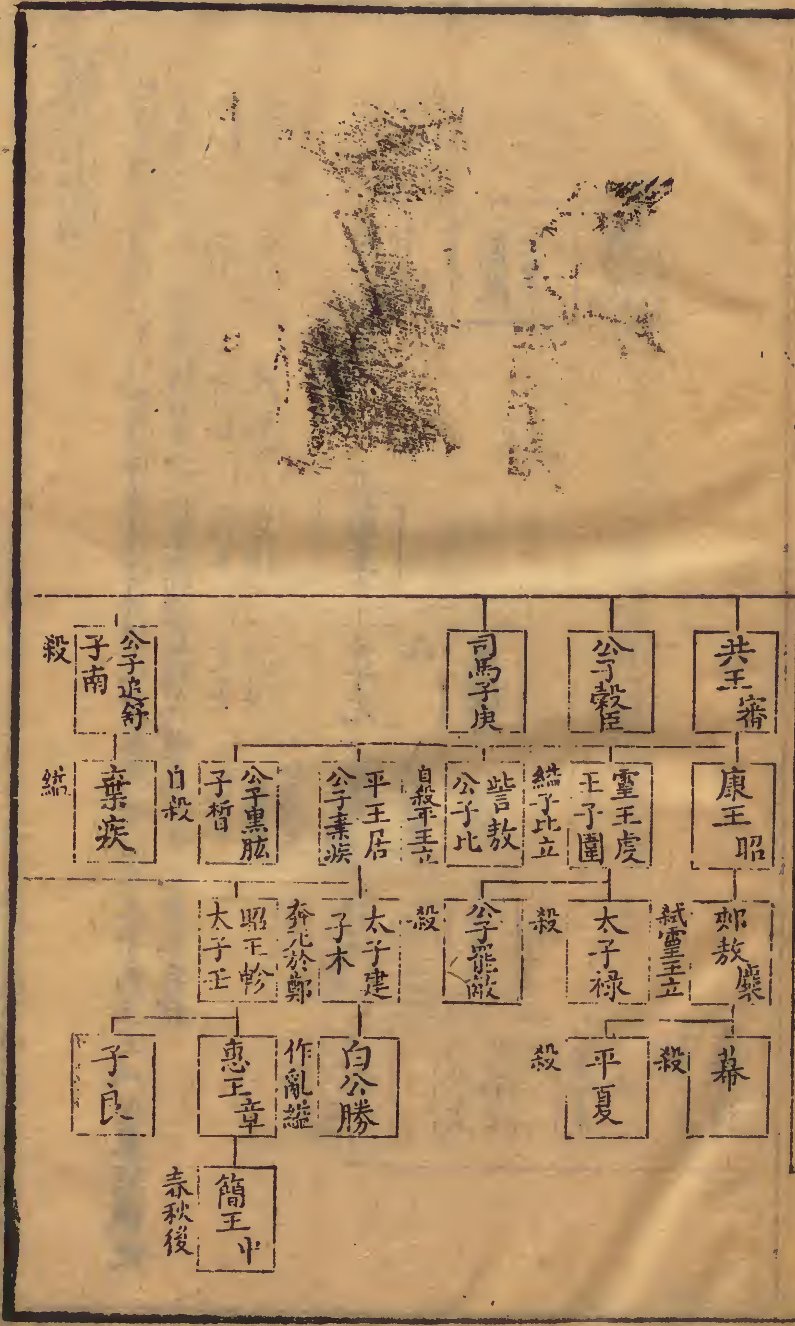 共王審
公子穀臣
司馬子庚
公子追舒
子南
殺
康王昭
靈王虔
王子圍
縊子比立
訾敖
公子比
自殺平王立
平王居
公子棄疾
公子黑肱
子晳
自殺
棄疾
縊
郟敖麇
弑靈王立
太子祿
殺
公子罷敵
殺
太子建
子木
奔死於鄭
昭王軫
太子壬
幕
殺
平夏
殺
白公勝
作亂縊
惠王章
子良
簡王中
春秋後